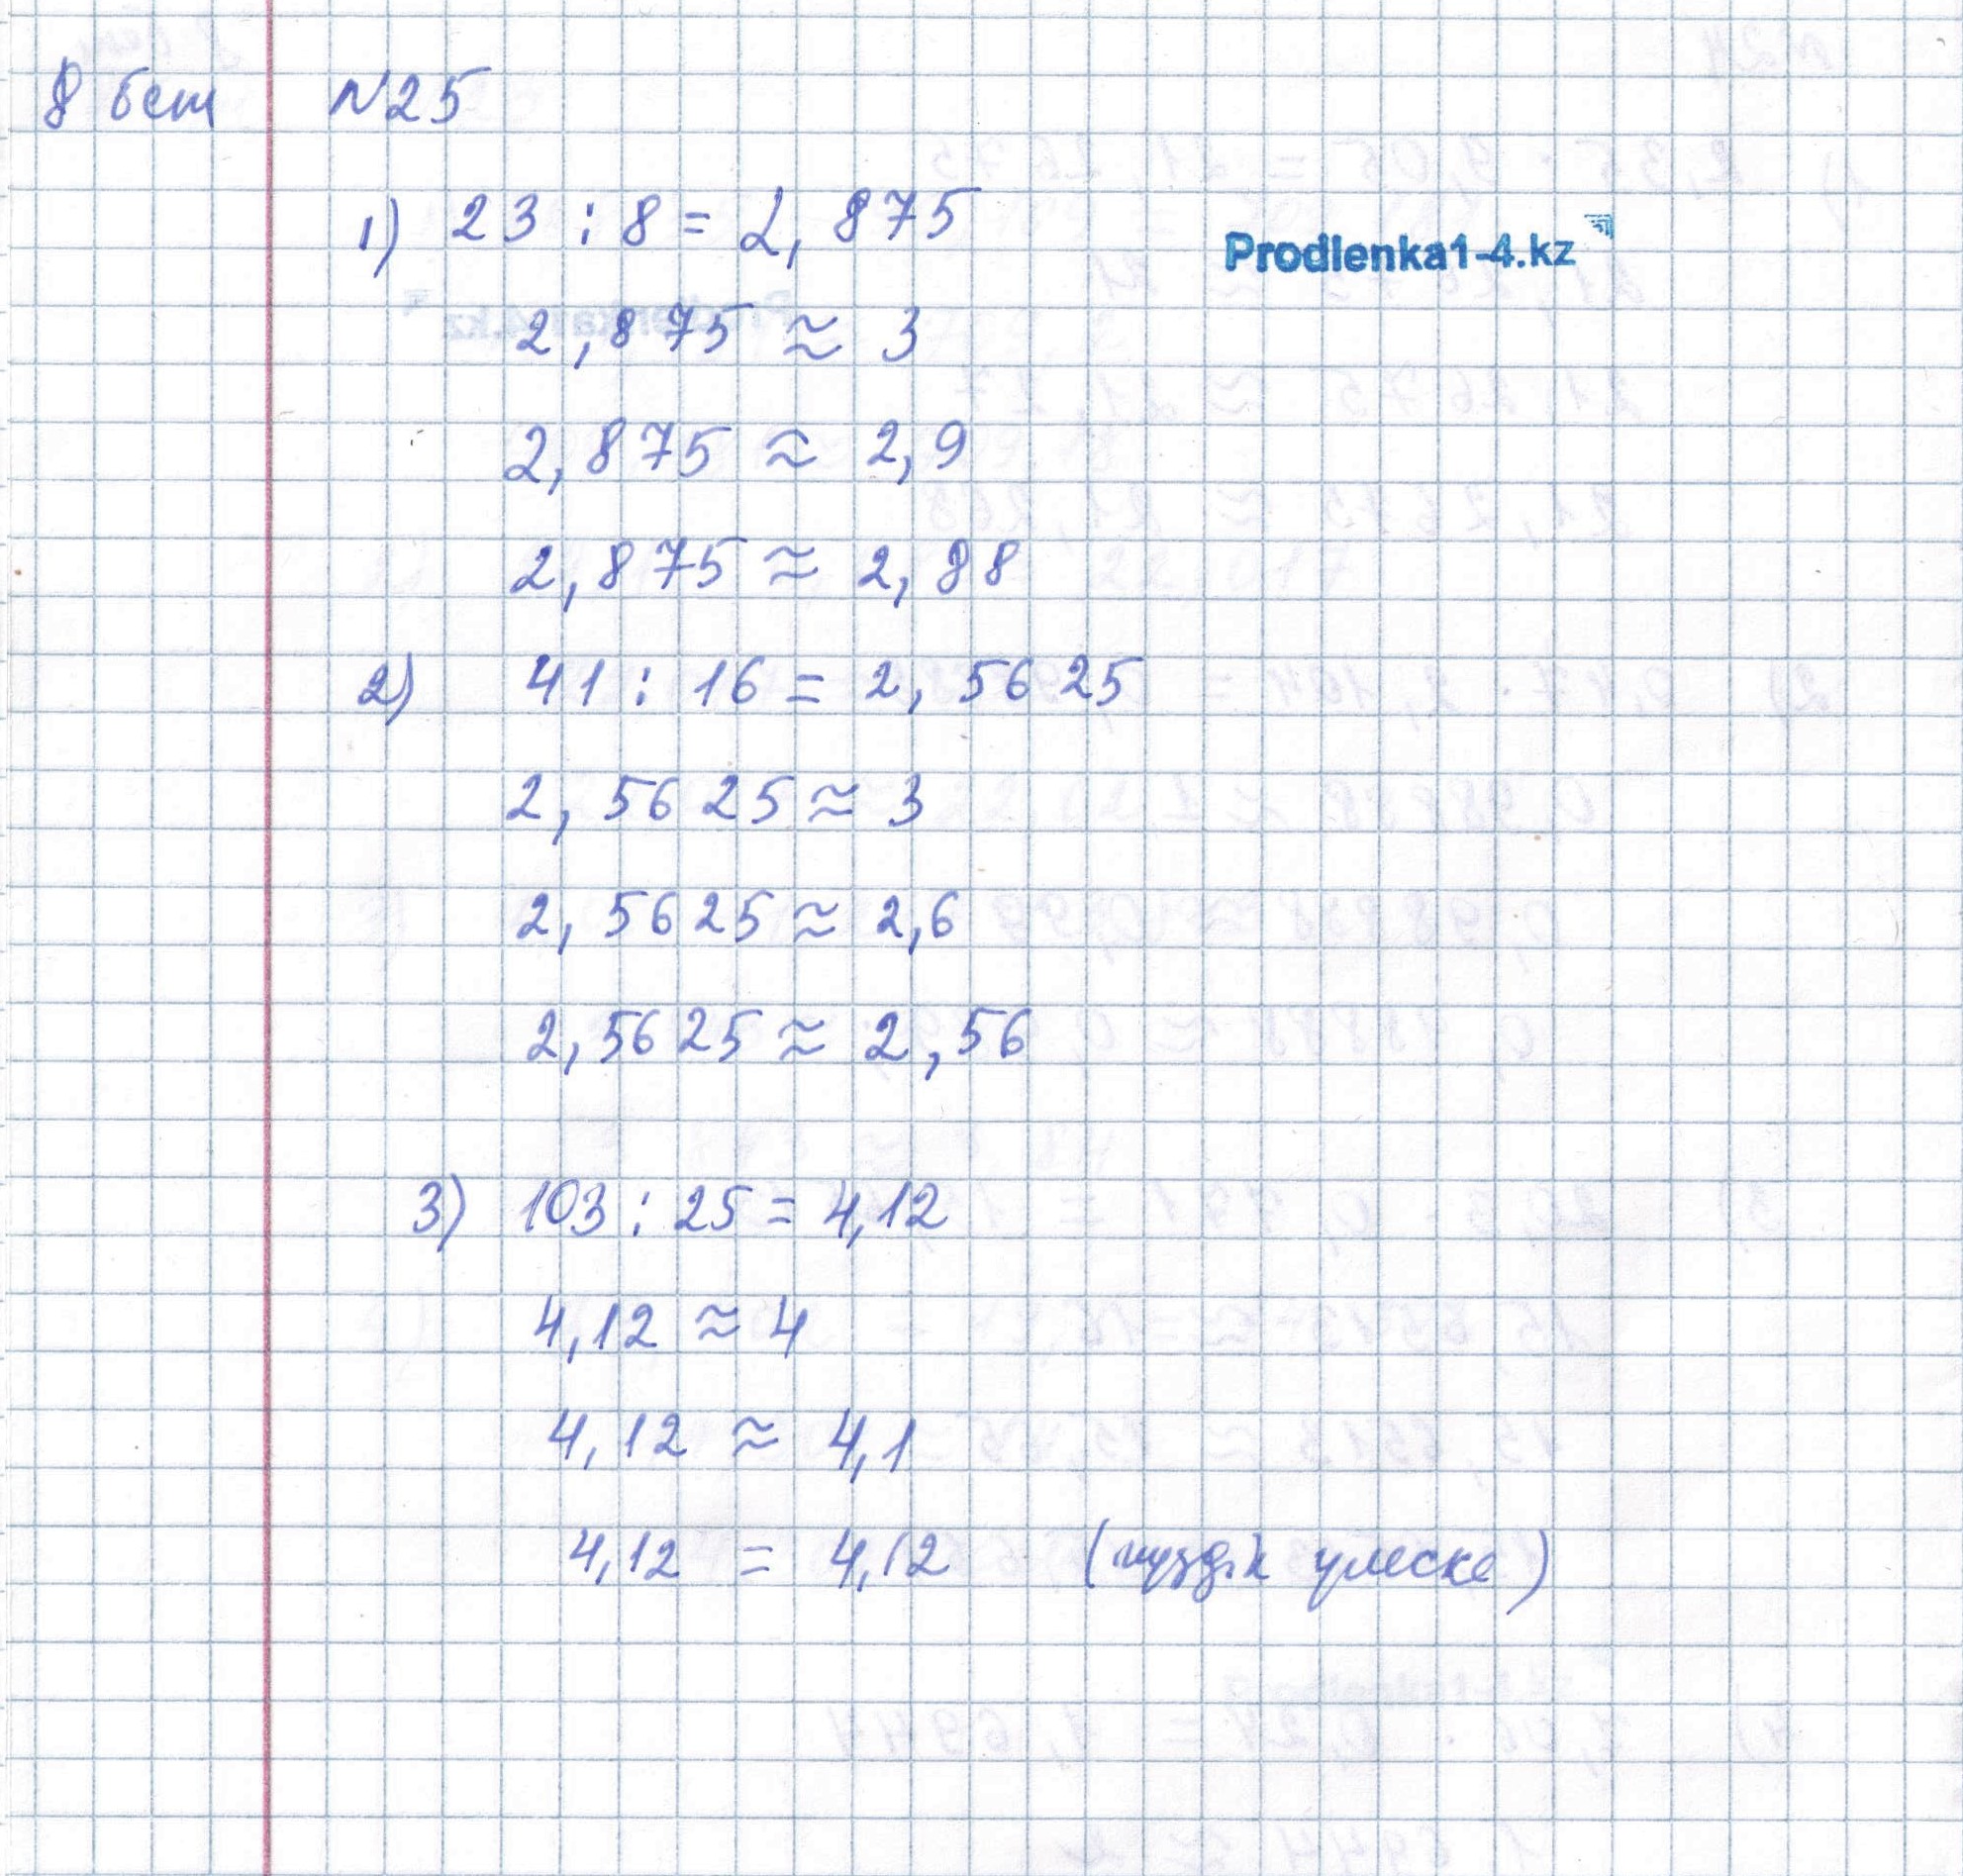 8 бет №25
1) 23 : 8 = 2,875
Prodlenka1-4.kz
2,875 ≈ 3
2,875 ≈ 2,9
2,875 ≈ 2,88
2) 41 : 16 = 2,5625
2,5625 ≈ 3
2,5625 ≈ 2,6
2,5625 ≈ 2,56
3) 103 : 25 = 4,12
4,12 ≈ 4
4,12 ≈ 4,1
4,12 = 4,12 (жүздік үлеске)